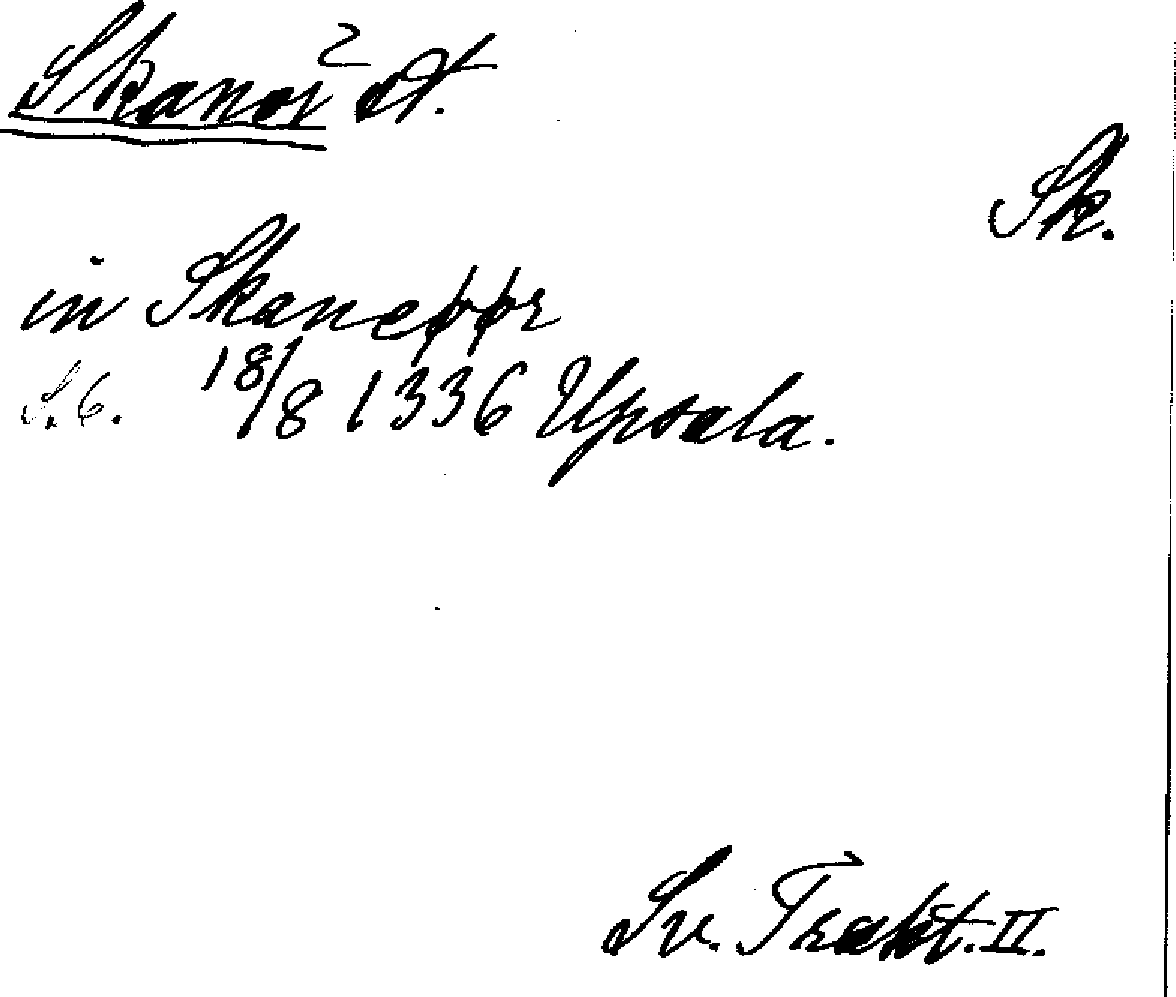 Skanör st.
Sk.
in Skaneppr
S. 6. 18/8 1336 Upsala.
Sv. Trakt. II.